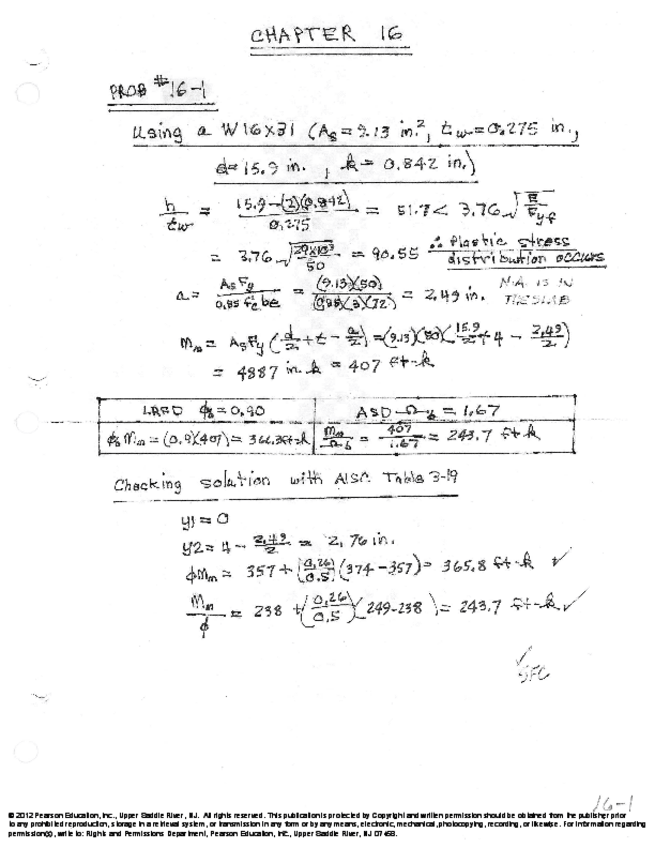 CHAPTER 16
PROB #16-1
Using a W16X31 (As = 9.13 in.², tw = 0.275 in.,
d = 15.9 in., k = 0.842 in.)
h/tw = (15.9 - (2)(0.842))/0.275 = 51.7 < 3.76 √(E/Fyf)
= 3.76 √(29×10³/50) = 90.55 ∴ Plastic stress distribution occurs
a = AsFy/(0.85 f'c be) = (9.13)(50)/((0.85)(3)(72)) = 2.49 in. N.A. IS IN THE SLAB
Mn = AsFy (d/2 + t - a/2) = (9.13)(50)(15.9/2 + 4 - 2.49/2)
= 4887 in.k = 407 ft-k
LRFD φb = 0.90 | ASD Ωb = 1.67
φb Mn = (0.9)(407) = 366.3 ft-k | Mn/Ωb = 407/1.67 = 243.7 ft-k
Checking solution with AISC Table 3-19
y1 = 0
y2 = 4 - 2.49/2 = 2.76 in.
φMn = 357 + (0.26/0.5)(374-357) = 365.8 ft-k ✓
Mn/φ = 238 + (0.26/0.5)(249-238) = 243.7 ft-k ✓
✓
16-1
© 2012 Pearson Education, Inc., Upper Saddle River, NJ. All rights reserved. This publication is protected by Copyright and written permission should be obtained from the publisher prior
to any prohibited reproduction, storage in a retrieval system, or transmission in any form or by any means, electronic, mechanical, photocopying, recording, or likewise. For information regarding
permission(s), write to: Rights and Permissions Department, Pearson Education, Inc., Upper Saddle River, NJ 07458.